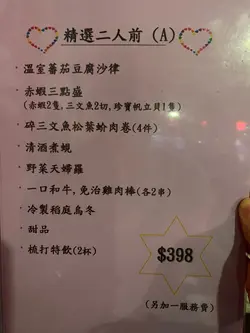 精選二人前 (A)
· 溫室蕃茄豆腐沙律
· 赤蝦三點盛
(赤蝦2隻,三文魚2切,珍寶帆立貝1隻)
· 碎三文魚松葉蛤肉卷(4件)
· 清酒煮蜆
· 野菜天婦羅
· 一口和牛,免治雞肉棒(各2串)
· 冷製稻庭烏冬
· 甜品
· 梳打特飲(2杯)
$398
(另加一服務費)